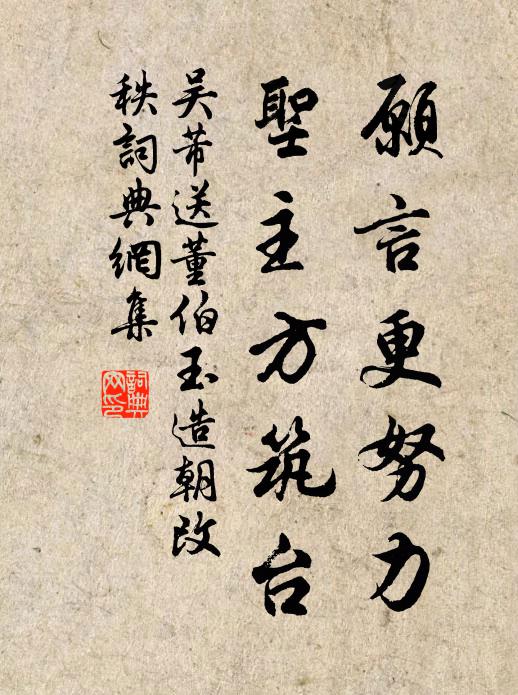 願言更努力
聖主方筑台
吴芾送董伯玉造朝改
秩詞典網集
詞典
网印